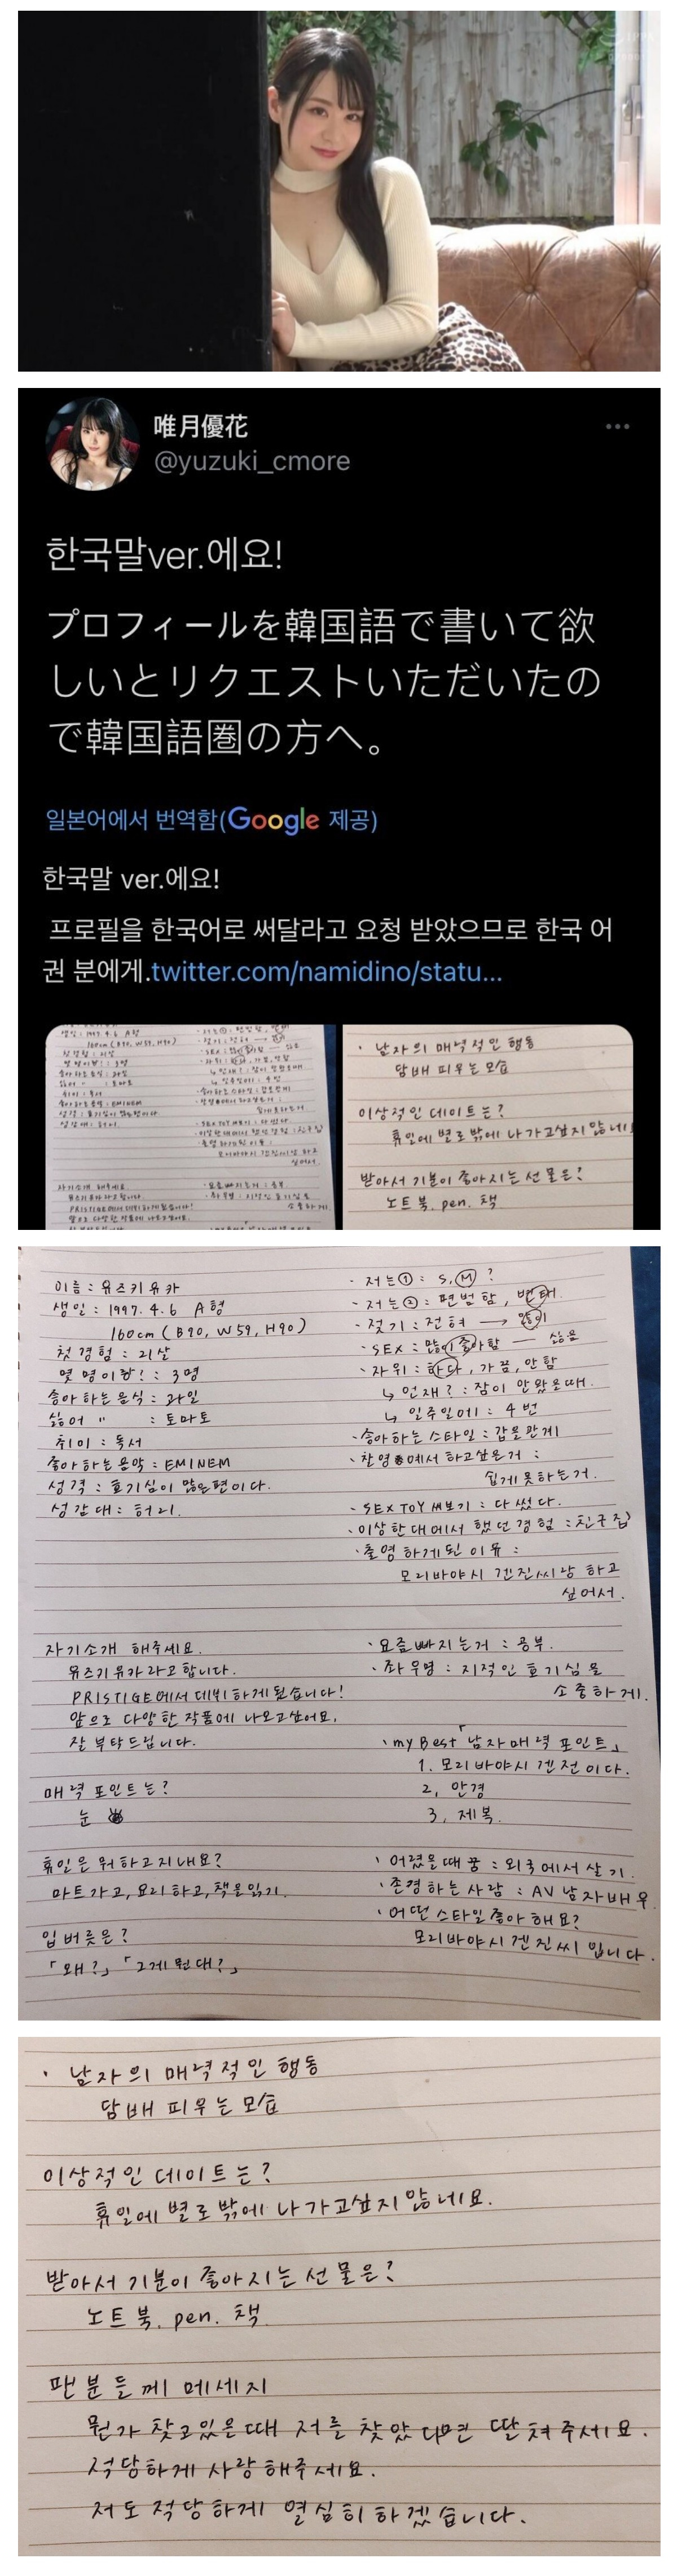 唯月優花
@yuzuki_cmore
한국말ver.에요!
プロフィールを韓国語で書いて欲
しいとリクエストいただいたの
で韓国語圏の方へ。
일본어에서 번역함(Google 제공)
한국말 ver.에요!
프로필을 한국어로 써달라고 요청 받았으므로 한국 어
권 분에게.twitter.com/namidino/statu...
· 남자의 매력적인 행동
담배 피우는 모습
이상적인 데이트는?
휴일에 별로 밖에 나가고싶지 않네요
받아서 기분이 좋아지는 선물은?
노트북. pen. 책
이름 : 유즈키 유카
생일 : 1997. 4. 6 A형
160cm ( B90, W59, H90 )
첫 경험 : 21살
몇 명이랑! : 3명
좋아하는 음식 : 과일
싫어 " : 토마토
취미 : 독서
좋아하는 음악 : EMINEM
성격 : 호기심이 많은편이다.
성감대 : 허리.
· 저는① : S, M ?
· 저는② : 편범함, 변태.
· 젖기 : 전혀 → 많이
· SEX : 많이좋아함 — 싫음
· 자위 : 하다, 가끔, 안함
↳ 언재? : 잠이 안왔은때.
↳ 일주일에 : 4번
· 좋아하는 스타일 : 갑을관계
· 찬영 에서 하고싶은거 :
쉽게못하는거.
· SEX TOY 써보기 : 다 썼다.
· 이상한대에서 했던경험 : 친구집
· 출영하게된 이유 :
모리바야시 겐진씨랑 하고
싶어서.
자기소개 해주세요.
유즈키 유카 라고 합니다.
PRISTIGE에서 데뷔하게 됬습니다!
앞으로 다양한 작품에 나오고싶어요.
잘 부탁드립니다.
매력 포인트는?
눈
휴일은 뭐 하고지내요?
마트가고, 요리하고, 책을읽기.
입버릇은?
「왜?」「그게 뭔대?」
· 요즘빠지는거 : 공부.
· 좌우명 : 지적인 호기심을
소중하게.
· my Best「남자매력 포인트」
1. 모리바야시 겐전이다.
2, 안경
3, 제복.
· 어렸을때 꿈 : 외국에서 살기.
· 존경하는 사람 : AV 남자배우.
· 어떤 스타일 좋아해요?
모리바야시 겐진씨 입니다.
· 남자의 매력적인 행동
담배 피우는 모습
이상적인 데이트는?
휴일에 별로 밖에 나가고싶지 않네요.
받아서 기분이 좋아지는 선물은?
노트북. pen. 책
팬분들께 메세지
뭔가 찾고있은때 저를 찾았다면 딸쳐주세요.
적당하게 사랑해주세요.
저도 적당하게 열심히 하겠습니다.